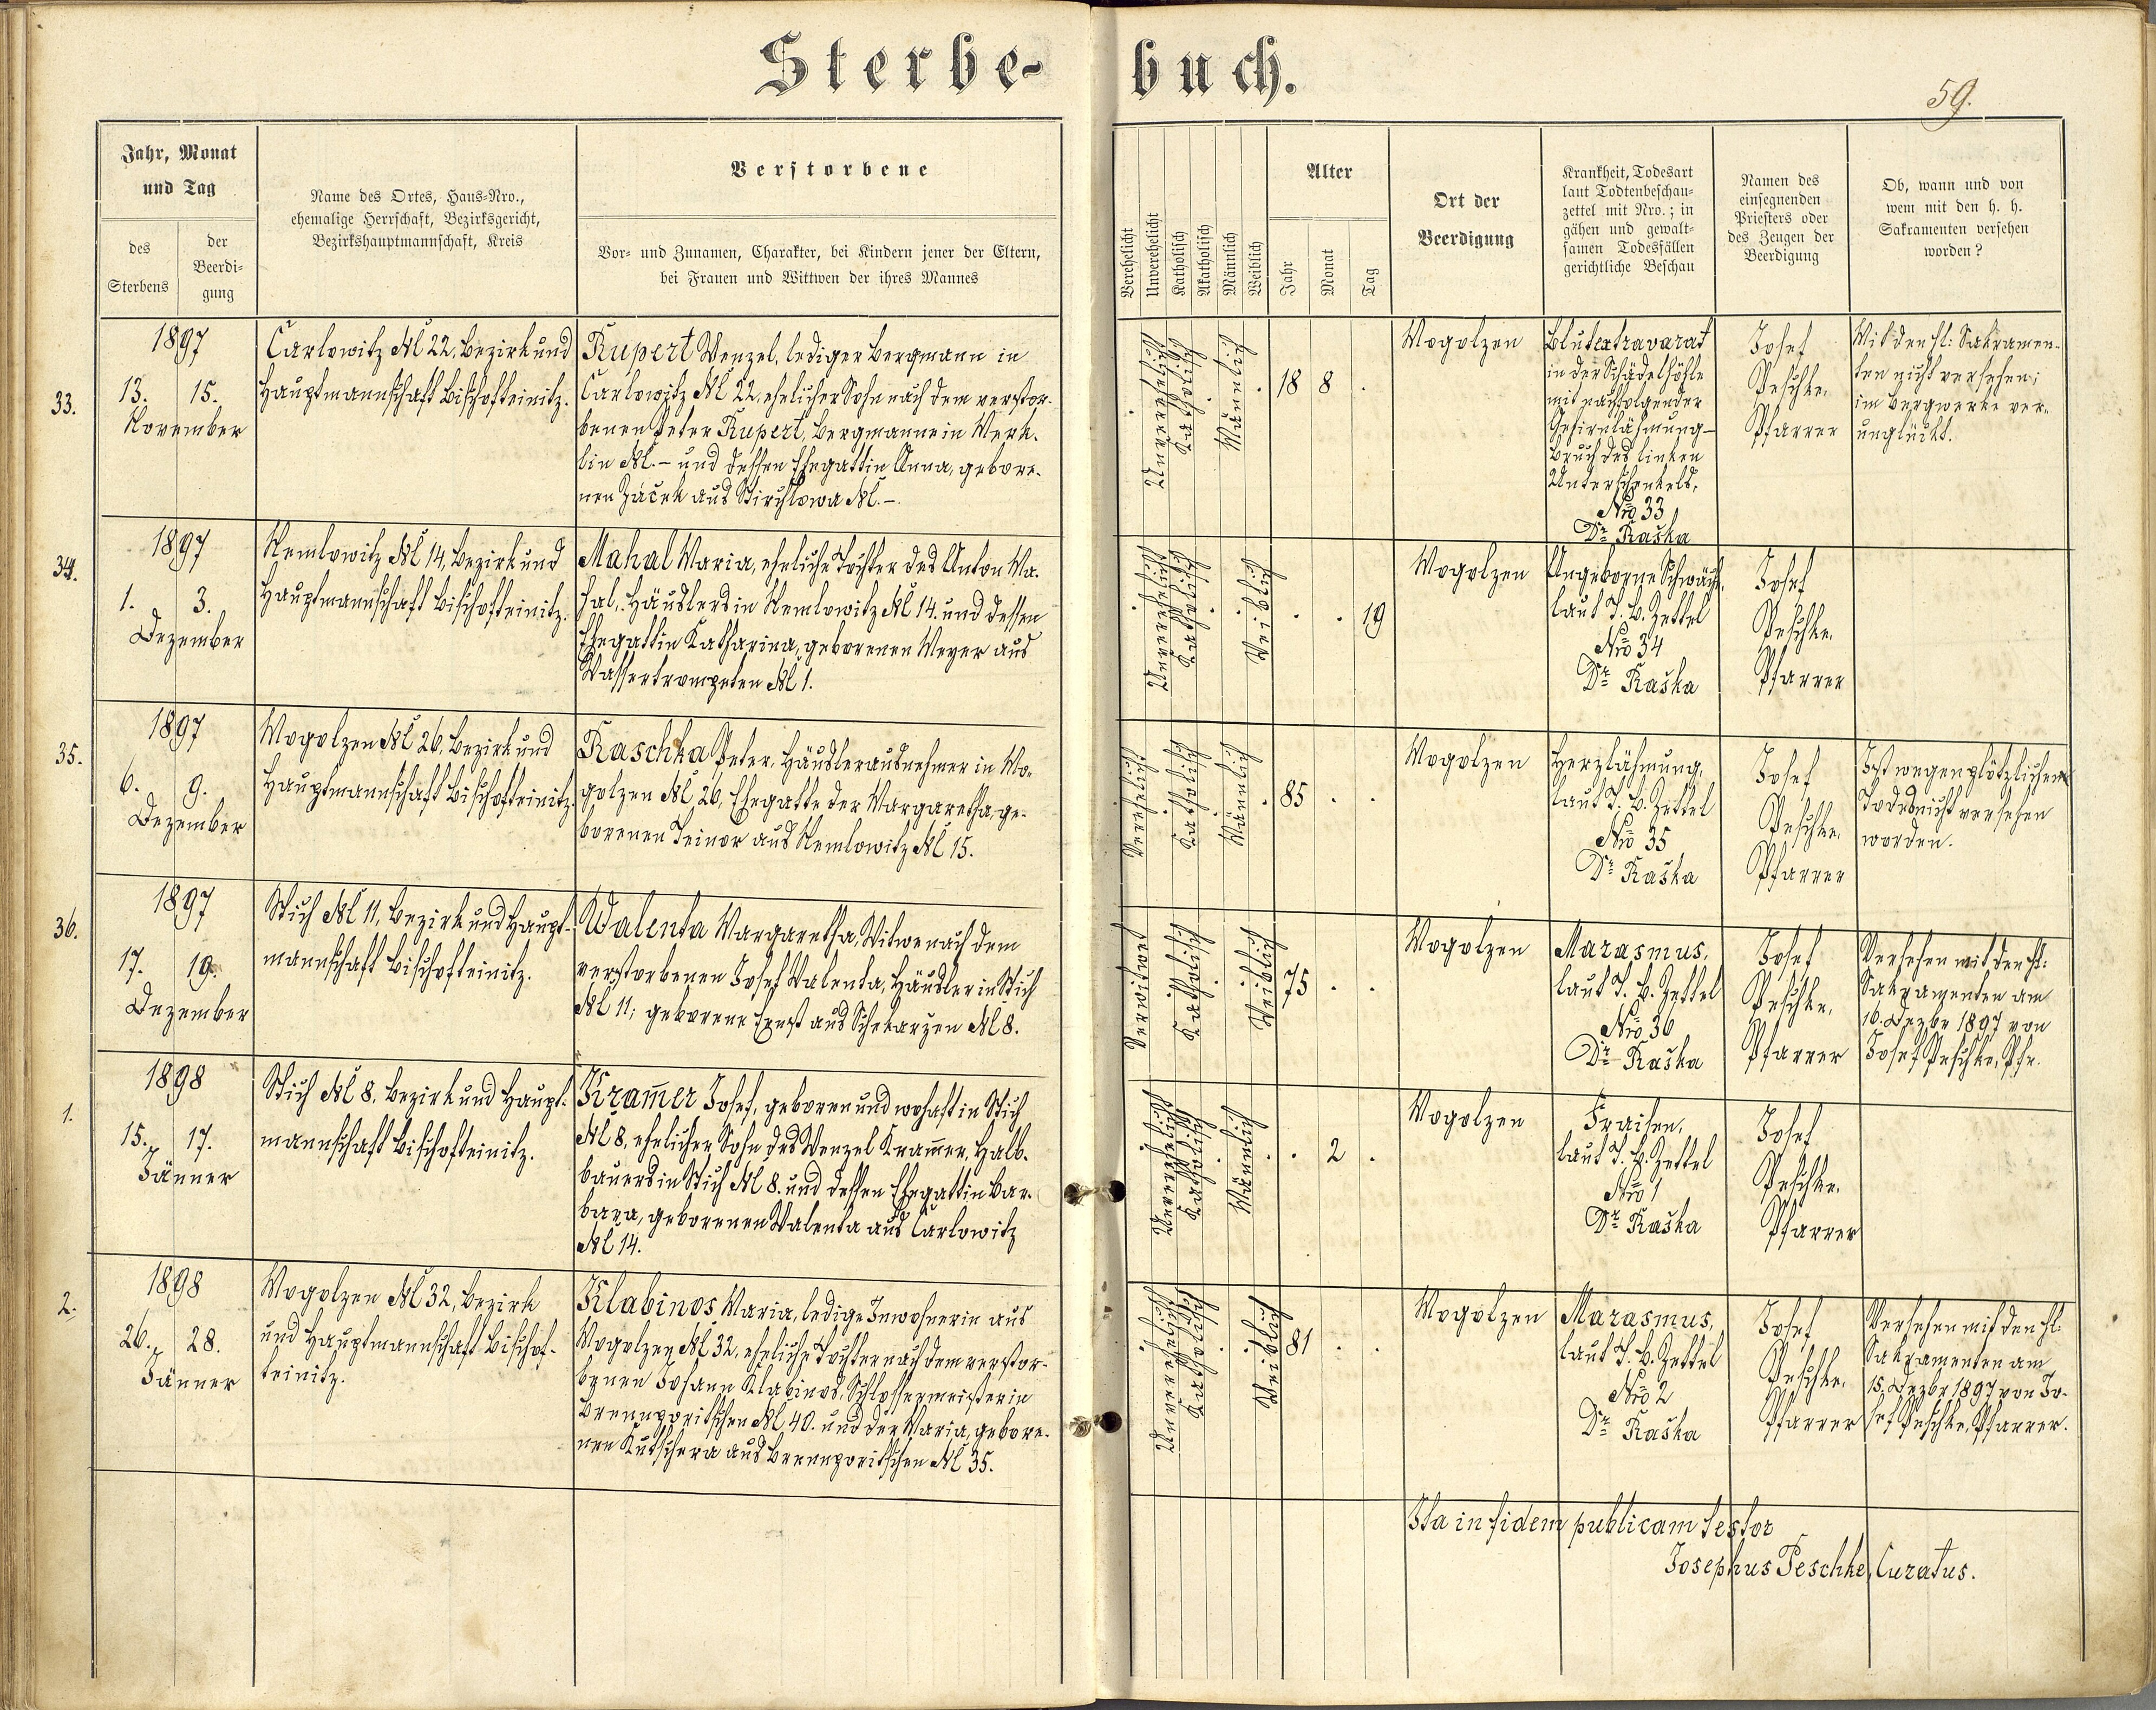 Sterbe-
buch.
59.
Jahr, Monat
und Tag
des
Sterbens
der
Beerdi-
gung
Name des Ortes, Haus-Nro.,
ehemalige Herrschaft, Bezirksgericht,
Bezirkshauptmannschaft, Kreis
Verstorbene
Vor- und Zunamen, Charakter, bei Kindern jener der Eltern,
bei Frauen und Wittwen der ihres Mannes
Verehelicht
Unverehelicht
Katholisch
Akatholisch
Männlich
Weiblich
Alter
Jahr
Monat
Tag
Ort der
Beerdigung
Krankheit, Todesart
laut Todtenbeschau-
zettel mit Nro.; in
gähen und gewalt-
samen Todesfällen
gerichtliche Beschau
Namen des
einsegnenden
Priesters oder
des Zeugen der
Beerdigung
Ob, wann und von
wem mit den h. h.
Sakramenten versehen
worden?
33.
1897
13. 15.
November
Carlowitz № 22, Bezirk und
Hauptmannschaft Bischofteinitz.
Rupert Wenzel, lediger Bergmann in
Carlowitz № 22, ehelicher Sohn nach dem verstor-
benen Peter Rupert, Bergmanne in Merk-
lin №. – und dessen Ehegattin Anna, gebore-
nen Žáček aus Stirchlowa №. –.
Unverehelicht
Katholisch
Männlich
18 8 .
Mogolzen
Blutextravarat
in der Schädelhöhle
mit nachfolgender
Gehirnlähmung –
Bruch des linken
Unterschenkels,
Nro 33
Dr Kaska
Josef
Peschke,
Pfarrer
Mit den hl: Sakramen-
ten nicht versehen;
im Bergwerke ver-
unglückt.
34.
1897
1. 3.
Dezember
Nemlowitz № 14, Bezirk und
Hauptmannschaft Bischofteinitz.
Mahal Maria, eheliche Tochter des Anton Ma-
hal, Häuslers in Nemlowitz № 14. und dessen
Ehegattin Katharina, geborenen Meyer aus
Wassertrompeten № 1.
Unverehelicht
Katholisch
Weiblich
. . 19
Mogolzen
Angeborne Schwäche,
laut T. B. Zettel
Nro 34
Dr Kaška
Josef
Peschke,
Pfarrer
35.
1897
6. 9.
Dezember
Mogolzen № 26, Bezirk und
Hauptmannschaft Bischofteinitz.
Raschka Peter, Häuslerausnehmer in Mo-
golzen № 26, Ehegatte der Margaretha, ge-
borenen Teinor aus Nemlowitz № 15.
Verehelicht
Katholisch
Männlich
85 . .
Mogolzen
Herzlähmung,
laut T. B. Zettel
Nro 35
Dr Kaška
Josef
Peschke,
Pfarrer
Ist wegen plötzlichen
Todes nicht versehen
worden.
36.
1897
17. 19.
Dezember
Stich № 11, Bezirk und Haupt-
mannschaft Bischofteinitz.
Walenta Margaretha, Witwe nach dem
verstorbenen Josef Walenta, Häusler in Stich
№ 11; geborene Ernst aus Schekarzen № 8.
Verwitwet
Katholisch
Weiblich
75 . .
Mogolzen
Marasmus,
laut T. B. Zettel
Nro 36
Dr Kaška
Josef
Peschke,
Pfarrer
Versehen mit den hl:
Sakramenten am
16. Dezbr 1897 von
Josef Peschke, Pfr.
1.
1898
15. 17.
Jänner
Stich № 8, Bezirk und Haupt-
mannschaft Bischofteinitz.
Kram̄er Josef, geboren und wohaft in Stich
№ 8, ehelicher Sohn des Wenzel Kram̄er, Halb-
bauers in Stich № 8. und dessen Ehegattin Bar-
bara, geborenen Walenta aus Carlowitz
№ 14.
Unverehelicht
Katholisch
Männlich
. 2 .
Mogolzen
Fraisen,
laut T. B. Zettel
Nro 1
Dr Kaška
Josef
Peschke,
Pfarrer
2.
1898
26. 28.
Jänner
Mogolzen № 32, Bezirk
und Hauptmannschaft Bischof-
teinitz.
Klabinos Maria, ledige Inwohnerin aus
Mogolzen № 32, eheliche Tochter nach dem verstor-
benen Johann Klabinos, Schlossermeister in
Brennporitschen № 40. und der Maria, gebore-
nen Kutschera aus Brennporitschen № 35.
Unverehelicht
Katholisch
Weiblich
81 . .
Mogolzen
Marasmus,
laut T. B. Zettel
Nro 2
Dr Kaška
Josef
Peschke,
Pfarrer
Versehen mit den hl:
Sakramenten am
15. Dezbr 1897 von Jo-
sef Peschke, Pfarrer.
Ita in fidem publicam testor
Josephus Peschke, Curatus.